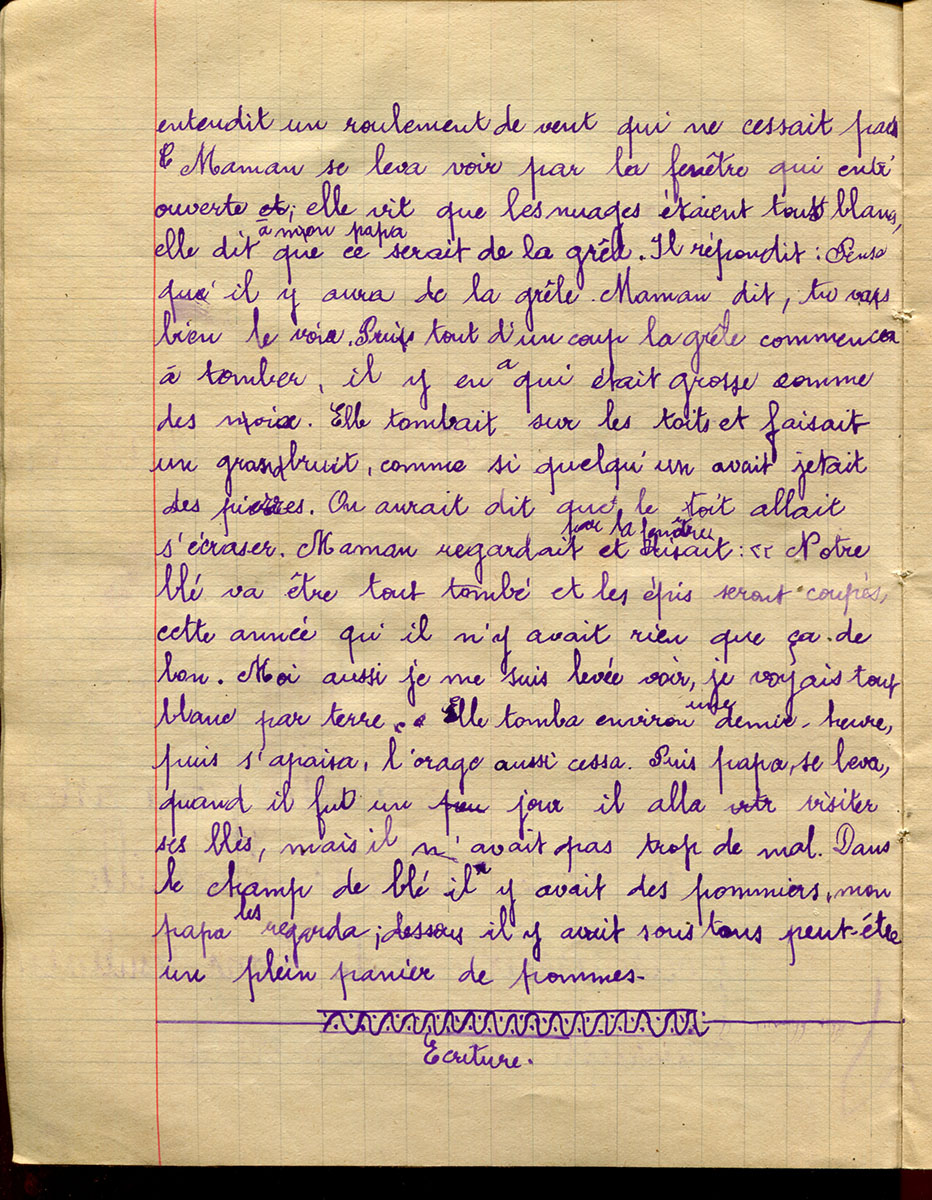 entendit un roulement de vent qui ne cessait pas
Maman se leva voir par la fenêtre qui entr'
ouverte et; elle vit que les nuages étaient tout blancs,
à mon papa
elle dit que ce serait de la grêle. Il répondit : Pense
qu'il y aura de la grêle. Maman dit, tu vas
bien le voir. Puis tout d'un coup la grêle commença
à tomber, il y en a qui était grosse comme
des noix. Elle tombait sur les toits et faisait
un grand bruit, comme si quelqu'un avait jetait
des pierres. On aurait dit que le toit allait
par la fenêtre
s'écraser. Maman regardait et disait : « Notre
blé va être tout tombé et les épis seront coupés,
cette année qu'il n'y avait rien que ça de
bon. Moi aussi je me suis levée voir, je voyais tout
blanc par terre. Elle tomba environ une demie-heure,
puis s'apaisa, l'orage aussi cessa. Puis papa, se leva,
quand il fut un peu jour il alla visiter
ses blés, mais il n'avait pas trop de mal. Dans
le champ de blé il y avait des pommiers, mon
papa les regarda ; dessous il y avait sous tous peut-être
un plein panier de pommes-
Ecriture.